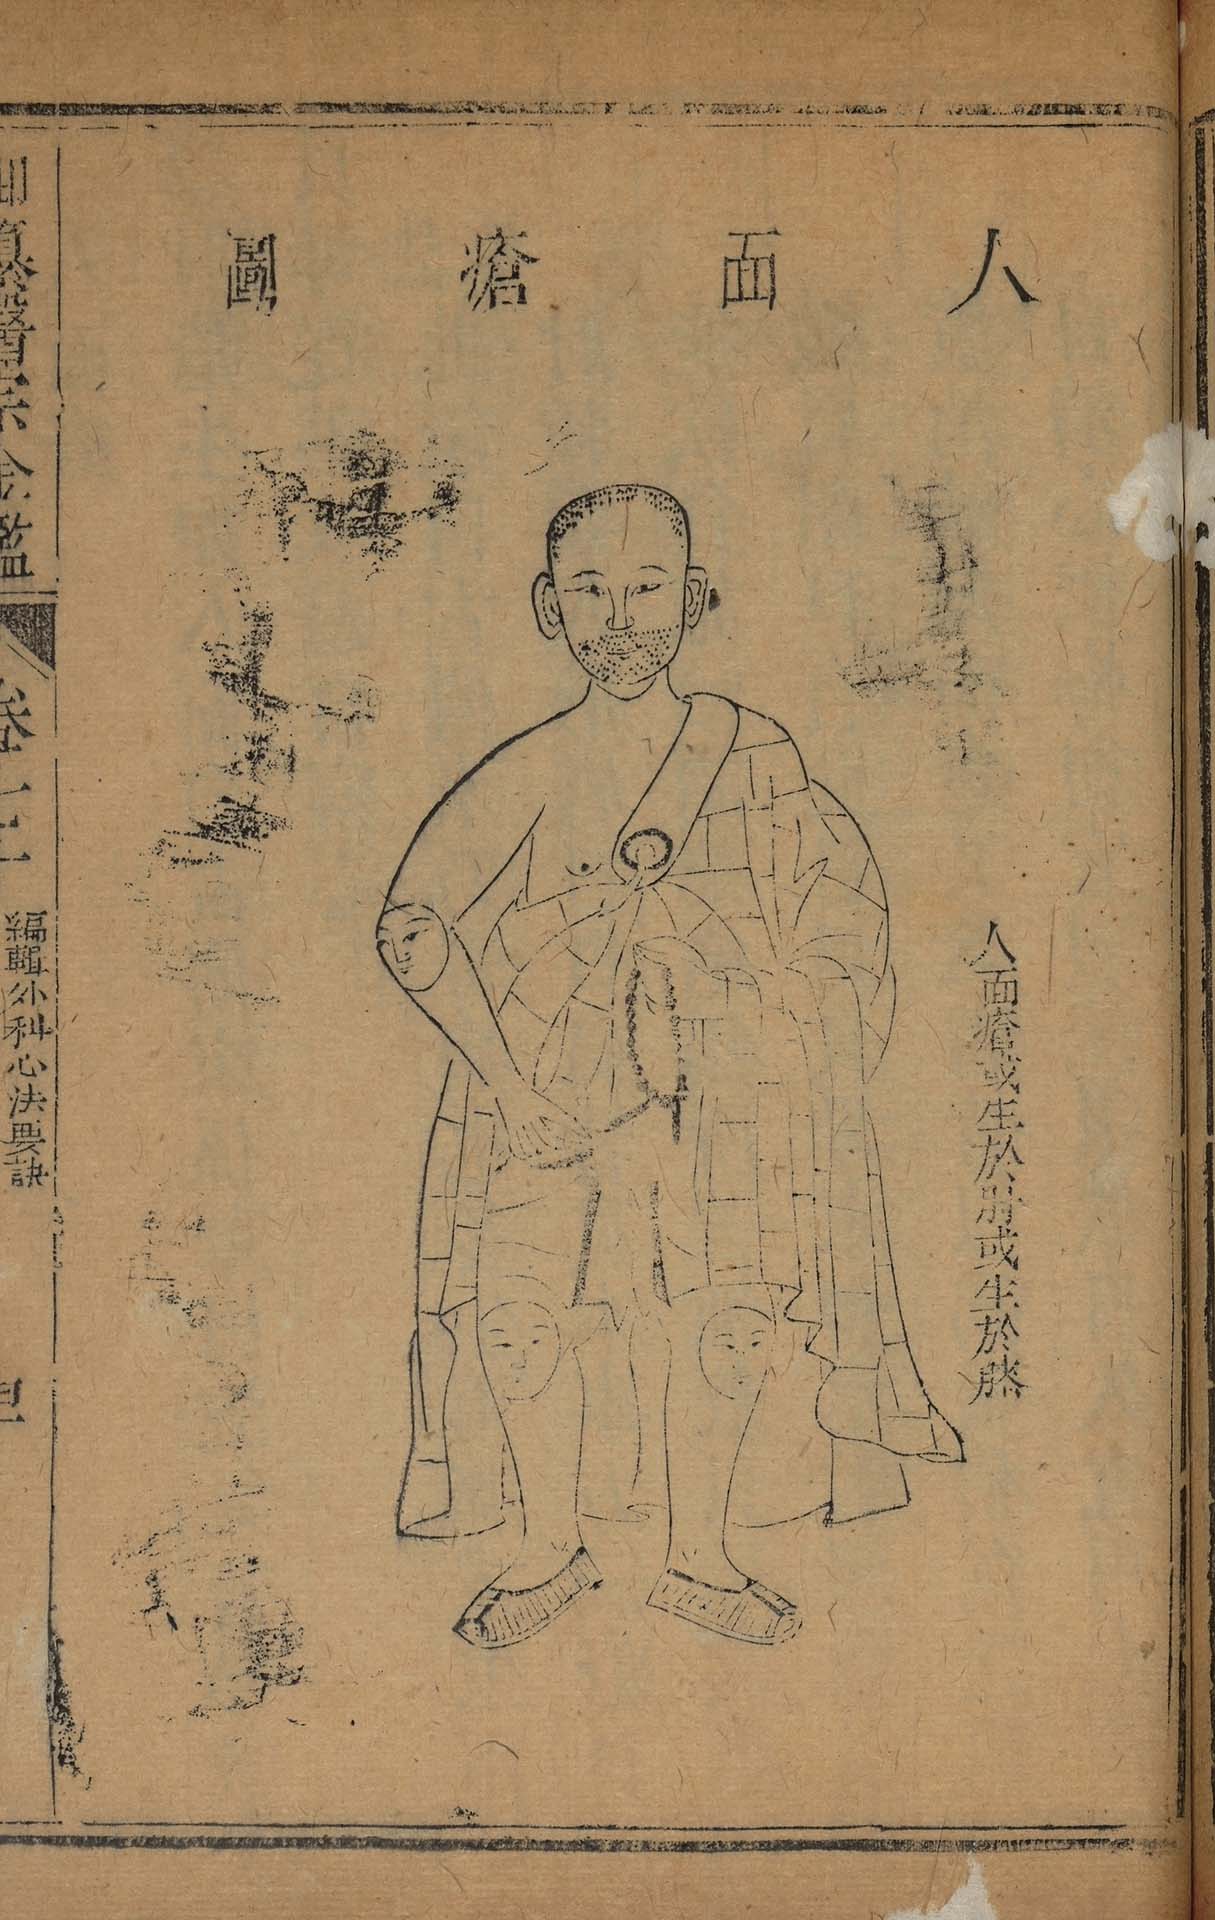 人面瘡圖
人面瘡或生於肘或生於膝
御纂醫宗金鑑
卷十三
編輯外科心法要訣